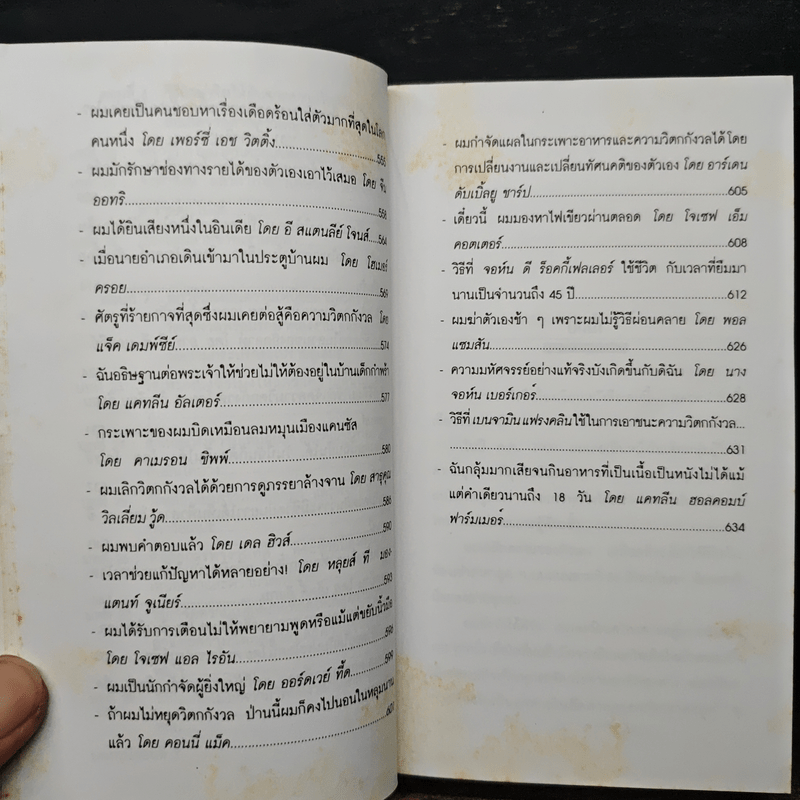 - ผมเคยเป็นคนชอบหาเรื่องเดือดร้อนใส่ตัวมากที่สุดในโลก
คนหนึ่ง โดย เพอร์ซี่ เอช วิตติ้ง
- ผมมักรักษาช่องทางรายได้ของตัวเองเอาไว้เสมอ โดย จีน
ออทรี 558
- ผมได้ยินเสียงหนึ่งในอินเดีย โดย อี สแตนลีย์ โจนส์ 564
- เมื่อนายอำเภอเดินเข้ามาในประตูบ้านผม โดย โฮเมอร์
ครอย 569
- ศัตรูที่ร้ายกาจที่สุดซึ่งผมเคยต่อสู้คือความวิตกกังวล โดย
แจ็ค เดมพ์ซีย์ 574
- ฉันอธิษฐานต่อพระเจ้าให้ช่วยไม่ให้ต้องอยู่ในบ้านเด็กกำพร้า
โดย แคทลีน อัลเตอร์ 577
- กระเพาะของผมบิดเหมือนลมหมุนเมืองแคนซัส
โดย คาเมรอน ชิพพ์ 580
- ผมเลิกวิตกกังวลได้ด้วยการดูภรรยาล้างจาน โดย สาธุคุณ
วิลเลี่ยม วู้ด 586
- ผมพบคำตอบแล้ว โดย เดล ฮิวส์ 590
- เวลาช่วยแก้ปัญหาได้หลายอย่าง! โดย หลุยส์ ที มอง-
แตนท์ จูเนียร์ 593
- ผมได้รับการเตือนไม่ให้พยายามพูดหรือแม้แต่ขยับนิ้วมือ
โดย โจเซฟ แอล ไรอัน 596
- ผมเป็นนักกำจัดผู้ยิ่งใหญ่ โดย ออร์ดเวย์ ที้ด 599
- ถ้าผมไม่หยุดวิตกกังวล ป่านนี้ผมก็คงไปนอนในหลุมนาน
แล้ว โดย คอนนี่ แม็ค
- ผมกำจัดแผลในกระเพาะอาหารและความวิตกกังวลได้ โดย
การเปลี่ยนงานและเปลี่ยนทัศนคติของตัวเอง โดย อาร์เดน
ดับเบิ้ลยู ชาร์ป 605
- เดี๋ยวนี้ ผมมองหาไฟเขียวผ่านตลอด โดย โจเซฟ เอ็ม
คอตเตอร์ 608
- วิธีที่ จอห์น ดี ร็อคกี้เฟลเลอร์ ใช้ชีวิต กับเวลาที่ยืมมา
นานเป็นจำนวนถึง 45 ปี 612
- ผมฆ่าตัวเองช้า ๆ เพราะผมไม่รู้วิธีผ่อนคลาย โดย พอล
แซมสัน 626
- ความมหัศจรรย์อย่างแท้จริงบังเกิดขึ้นกับดิฉัน โดย นาง
จอห์น เบอร์เกอร์ 628
- วิธีที่ เบนจามิน แฟรงคลิน ใช้ในการเอาชนะความวิตกกังวล...
631
- ฉันกลุ้มมากเสียจนกินอาหารที่เป็นเนื้อเป็นหนังไม่ได้แม้
แต่คำเดียวนานถึง 18 วัน โดย แคทลีน ฮอลคอมบ์
ฟาร์มเมอร์ 634